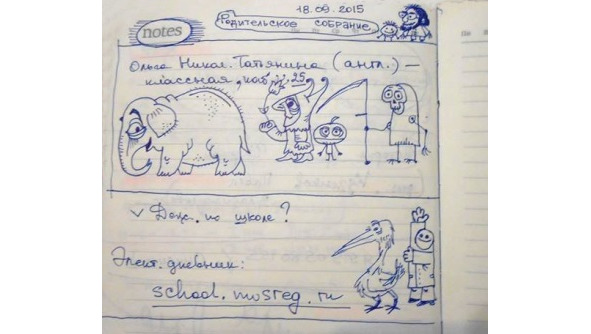 18.09.2015
notes
Родительское собрание
Ольга Никол. Татянина (англ.) –
классная, каб. 25
✓ Деж. по школе?
Элект. дневник:
school.mosreg.ru